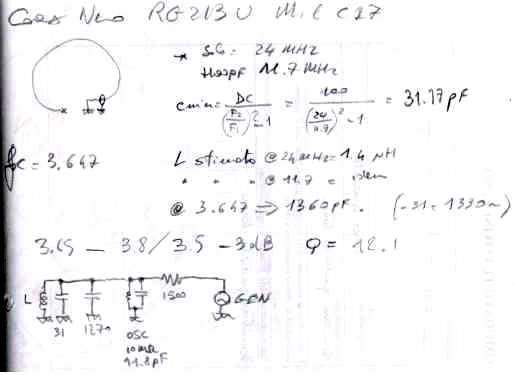 Coax Nero RG213U Mil C17
* S.G. = 24 MHz
H100pF 11.7 MHz
cmin = DC / (F2/F1)² - 1 = 100 / (24/11.7)² - 1 = 31.17 pF
fc = 3.647
L stimato @ 24 MHz = 1.4 µH
" " " @ 11.7 = idem
@ 3.647 => 1360 pF. (-31 = 1330)
3.65 — 3.8/3.5 -3dB Q = 12.1
L
31
1270
1500
GEN
OSC
10 MΩ
11.8pF